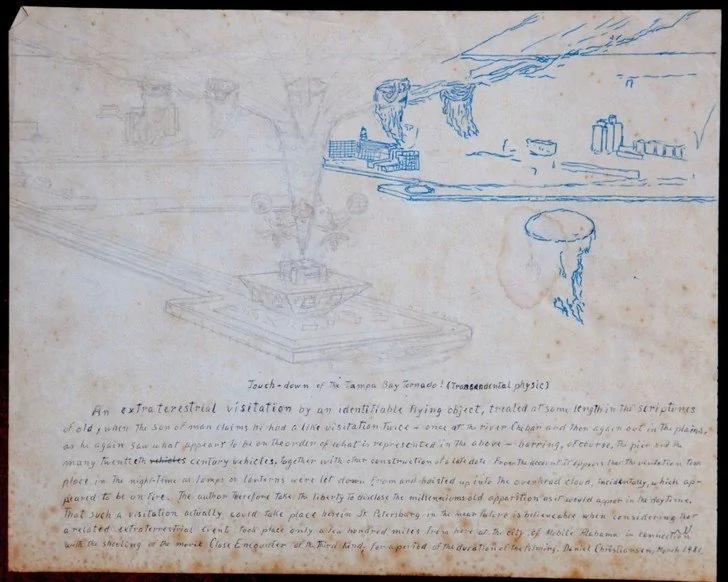 Touch-down of the Tampa Bay Tornado! (Transendental physic)
An extraterestrial visitation by an identifiable flying object, treated at some length in the scriptures
of old, when the son of man claims he had a like visitation twice - once at the river Chebar and then again out in the plains,
as he again saw what appear to be on the order of what is represented in the above - barring, of course, the pier and the
many twentieth vehicles century vehicles, together with other construction of a late date. From the account it appears that the visitation took
place in the night-time as lamps or lanterns were let down from and hoisted up into the overhead cloud, incidentally, which ap-
peared to be on fire. The author therefore take the liberty to disclose the milleniums old apparition as it would appear in the daytime.
That such a visitation actually could take place herein St. Petersburg in the near future is believeable when considering that
a related extraterrestrial event took place only a few hundred miles from here at the city of Mobile Alabama in connection
with the shooting of the movie Close Encounter of the Third Kind, for a period of the duration of the filming. Daniel Christiansen, March 1981.